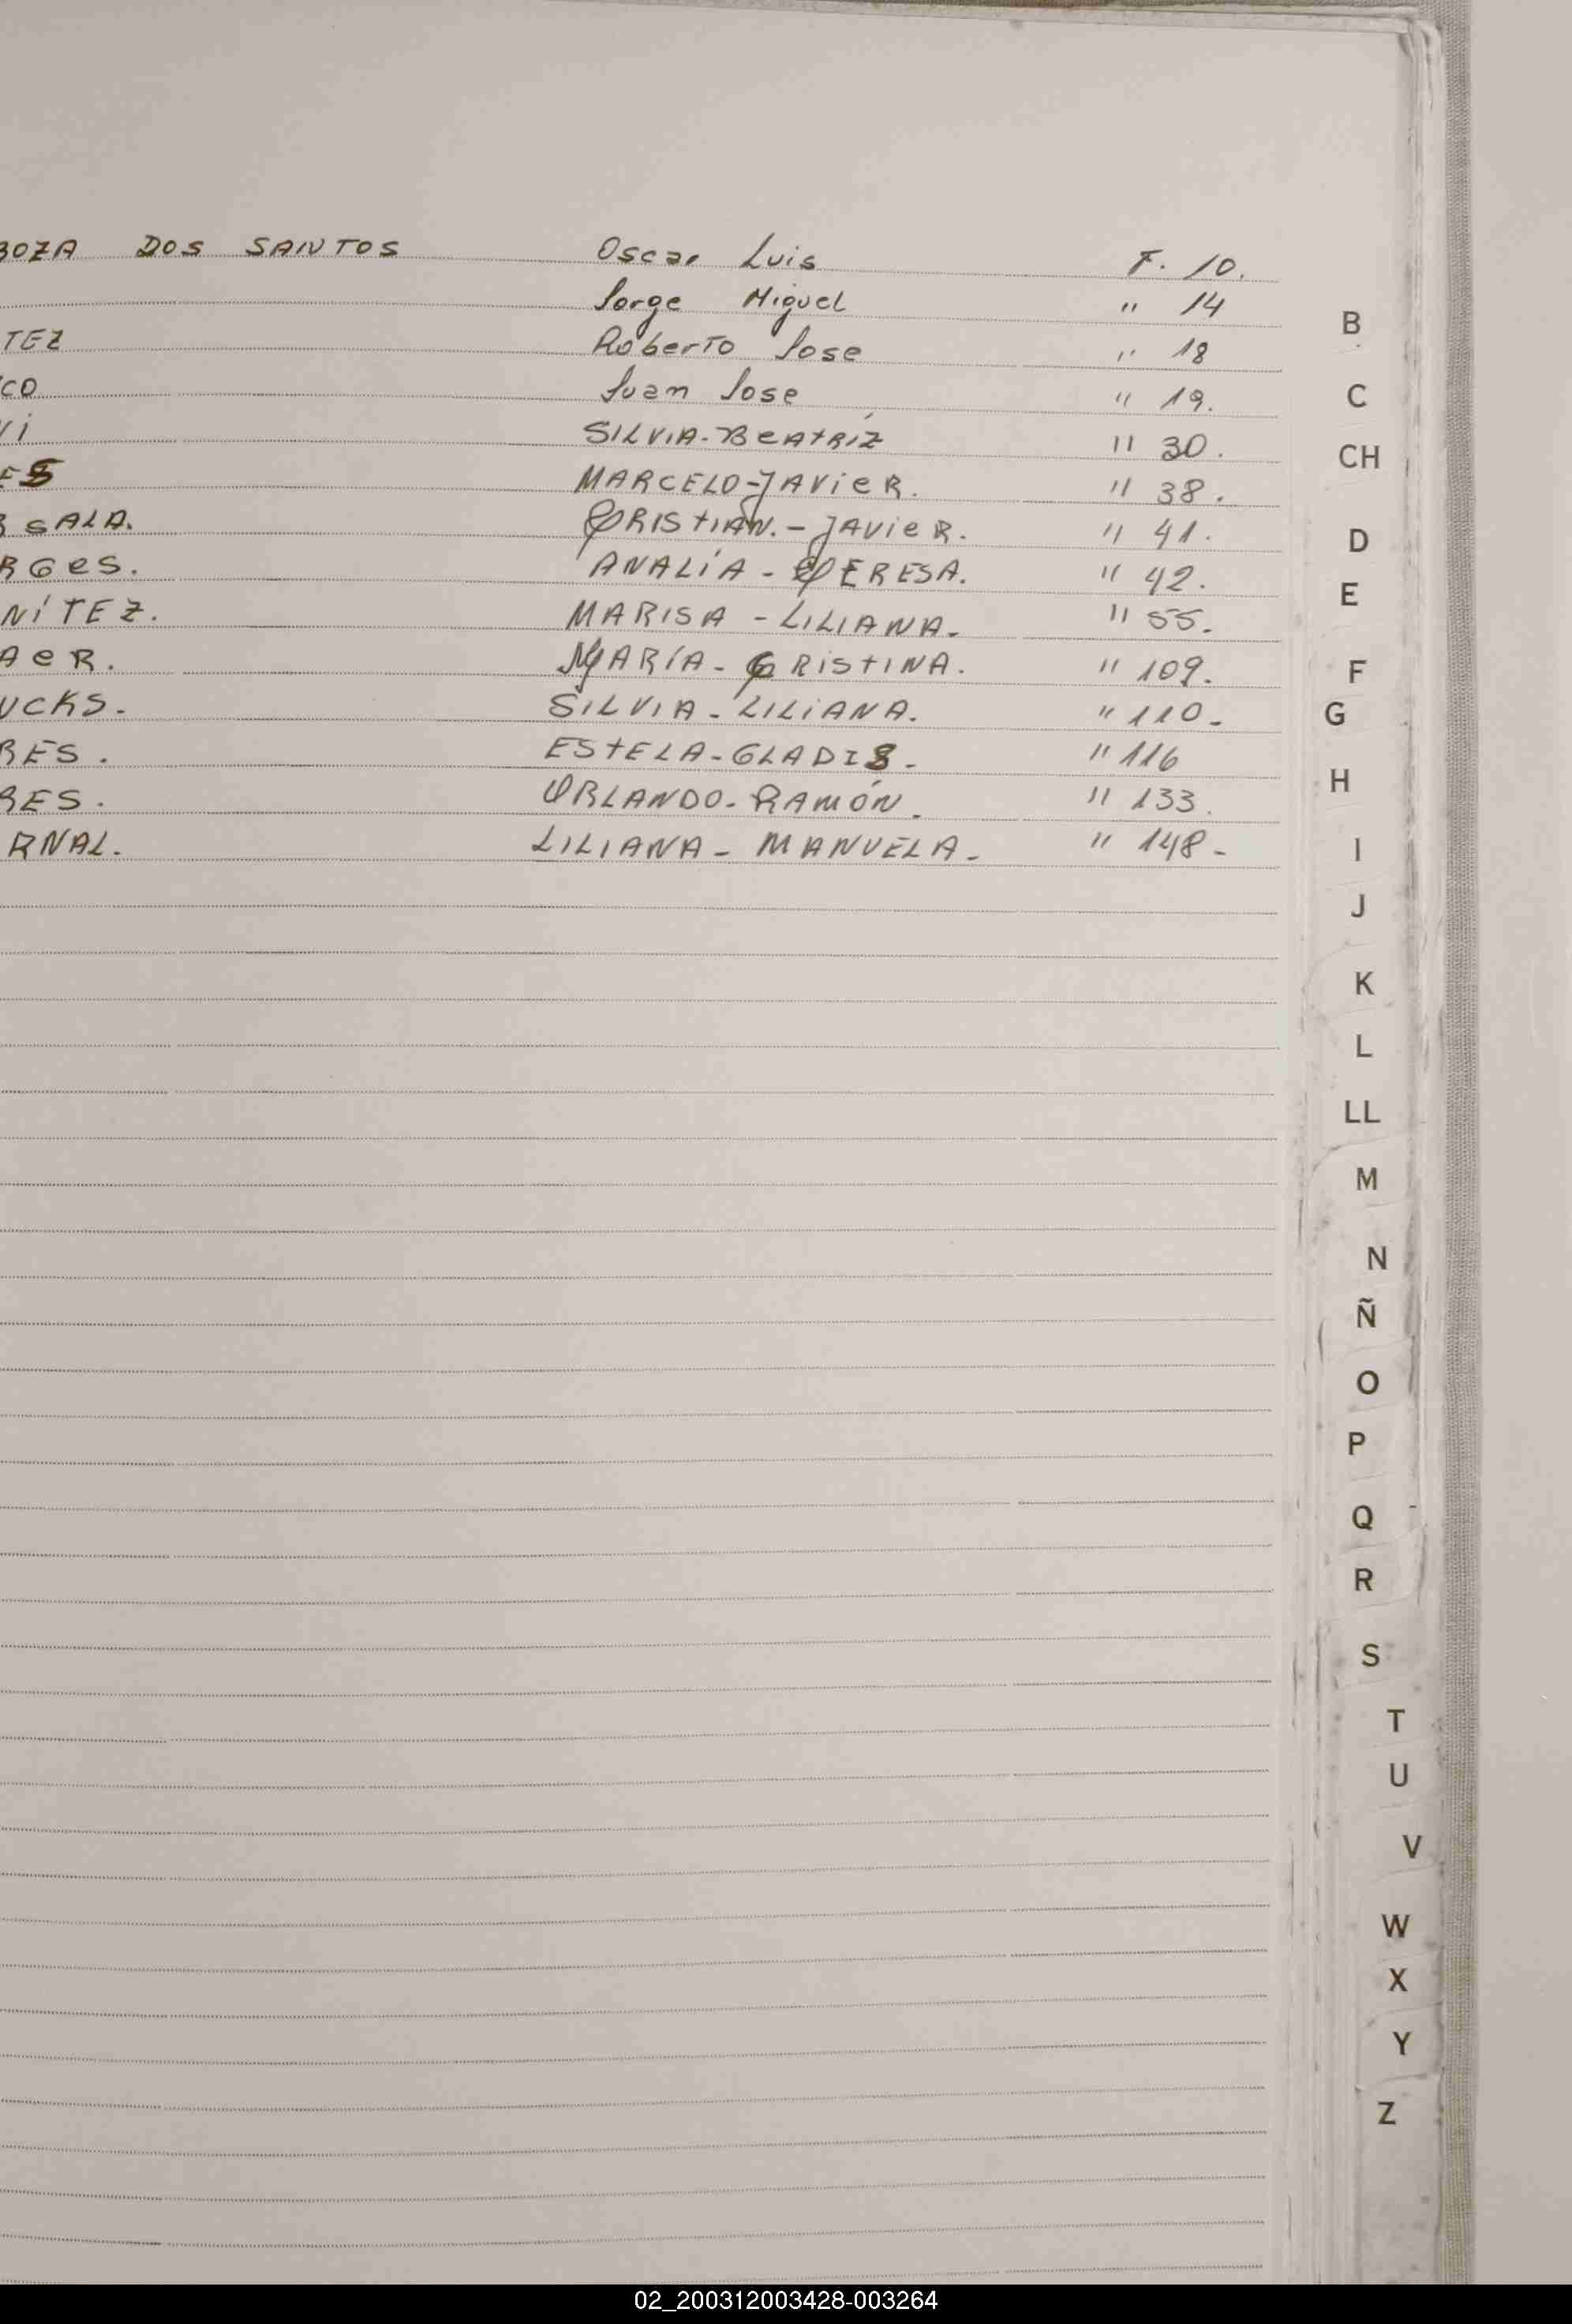 BOZA DOS SANTOS Oscar Luis F. 10.
Jorge Miguel " 14
TEZ Roberto Jose " 18
CO Juan Jose " 19.
VI SILVIA-BEATRÍZ " 30.
ES MARCELO-JAVIER. " 38.
SALA. CRISTIAN.-JAVIER. " 41.
RGES. ANALÍA-TERESA. " 42.
NÍTEZ. MARISA-LILIANA. " 55.
AER. MARÍA-CRISTINA. " 109.
UCKS. SILVIA-LILIANA. " 110-
RES. ESTELA-GLADIS- " 116
RES. ORLANDO-RAMÓN. " 133.
RNAL. LILIANA-MANUELA- " 148-
B
C
CH
D
E
F
G
H
I
J
K
L
LL
M
N
Ñ
O
P
Q
R
S
T
U
V
W
X
Y
Z
02_200312003428-003264